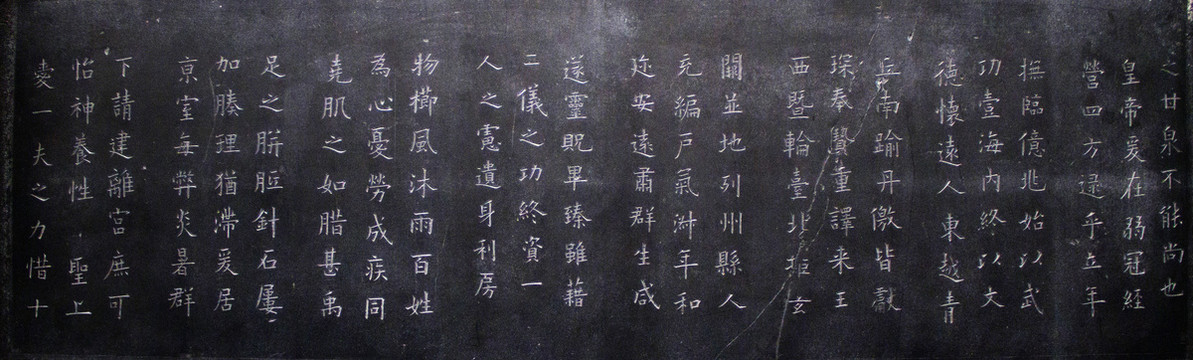 之甘泉不能尚也
皇帝爰在弱冠經
營四方逮乎立年
撫臨億兆始以武
功壹海內終以文
德懷遠人東越青
丘南踰丹儌皆獻
琛奉贄重譯来王
西暨輪臺北拒玄
闕並地列州縣人
充編戶氣淋年和
迩安遠肅群生咸
遂靈貺畢臻雖藉
二儀之功終資一
人之憲遺身利房
物櫛風沐雨百姓
為心憂勞成疾同
堯肌之如腊甚禹
足之胼胝針石屢
加腠理猶滯爰居
京室每弊炎暑群
下請建離宮庶可
怡神養性聖上
愛一夫之力惜十